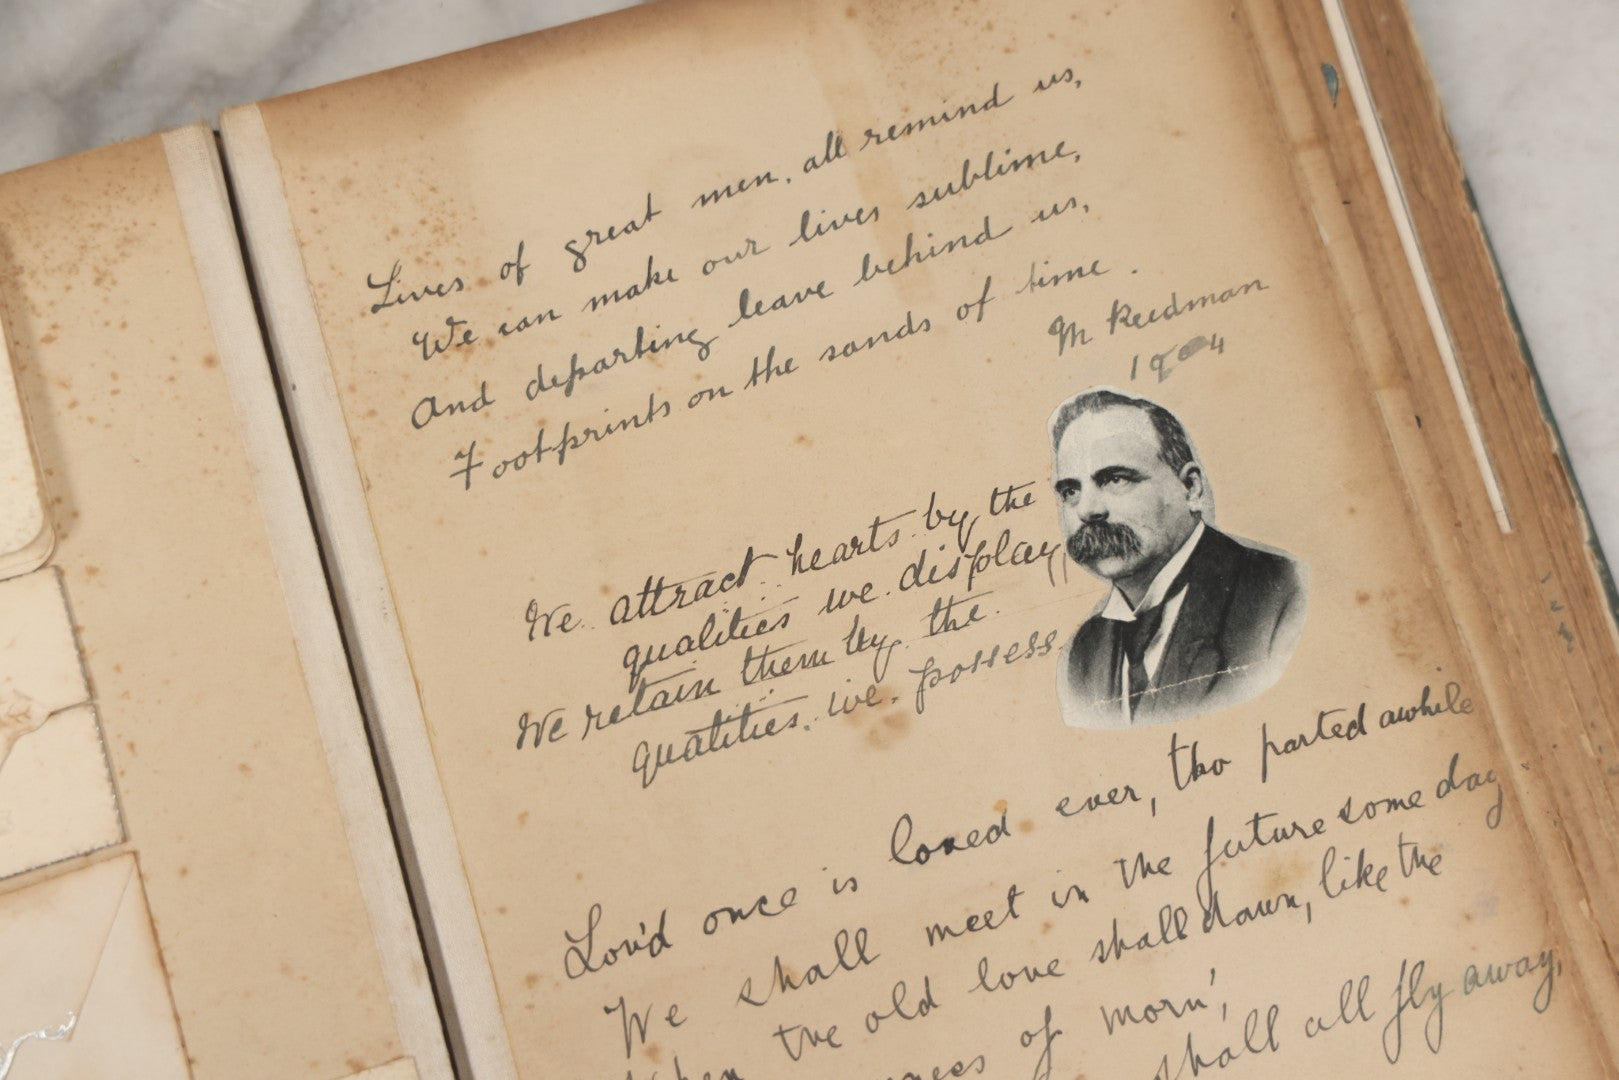 Lives of great men, all remind us,
We can make our lives sublime,
And departing leave behind us,
Footprints on the sands of time.
M Reedman
1904
We attract hearts by the
qualities we display,
We retain them by the
qualities we possess.
Lov'd once is loved ever, tho parted awhile
We shall meet in the future some day.
the old love shall dawn, like the
of morn',
shall all fly away,